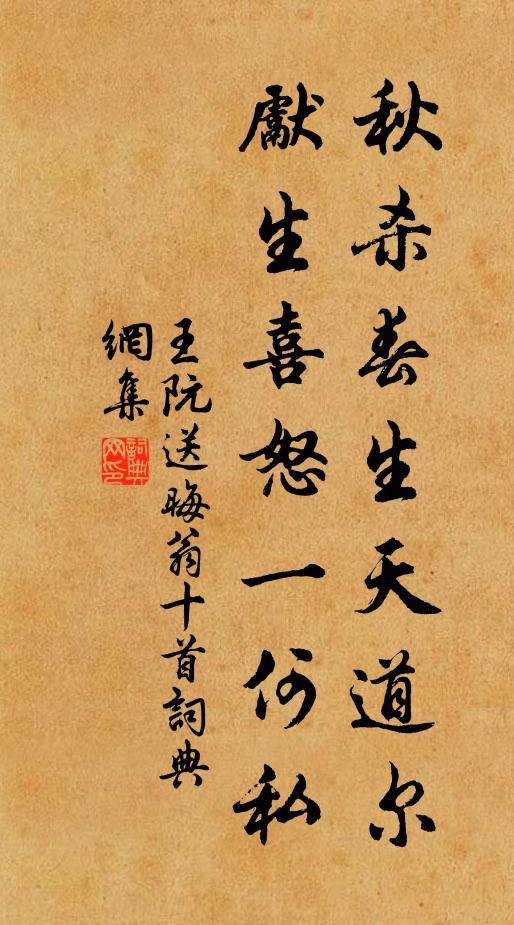 秋杀春生天道尔
獻生喜怒一何私
王阮送晦翁十首詞典
網集
詞典網印